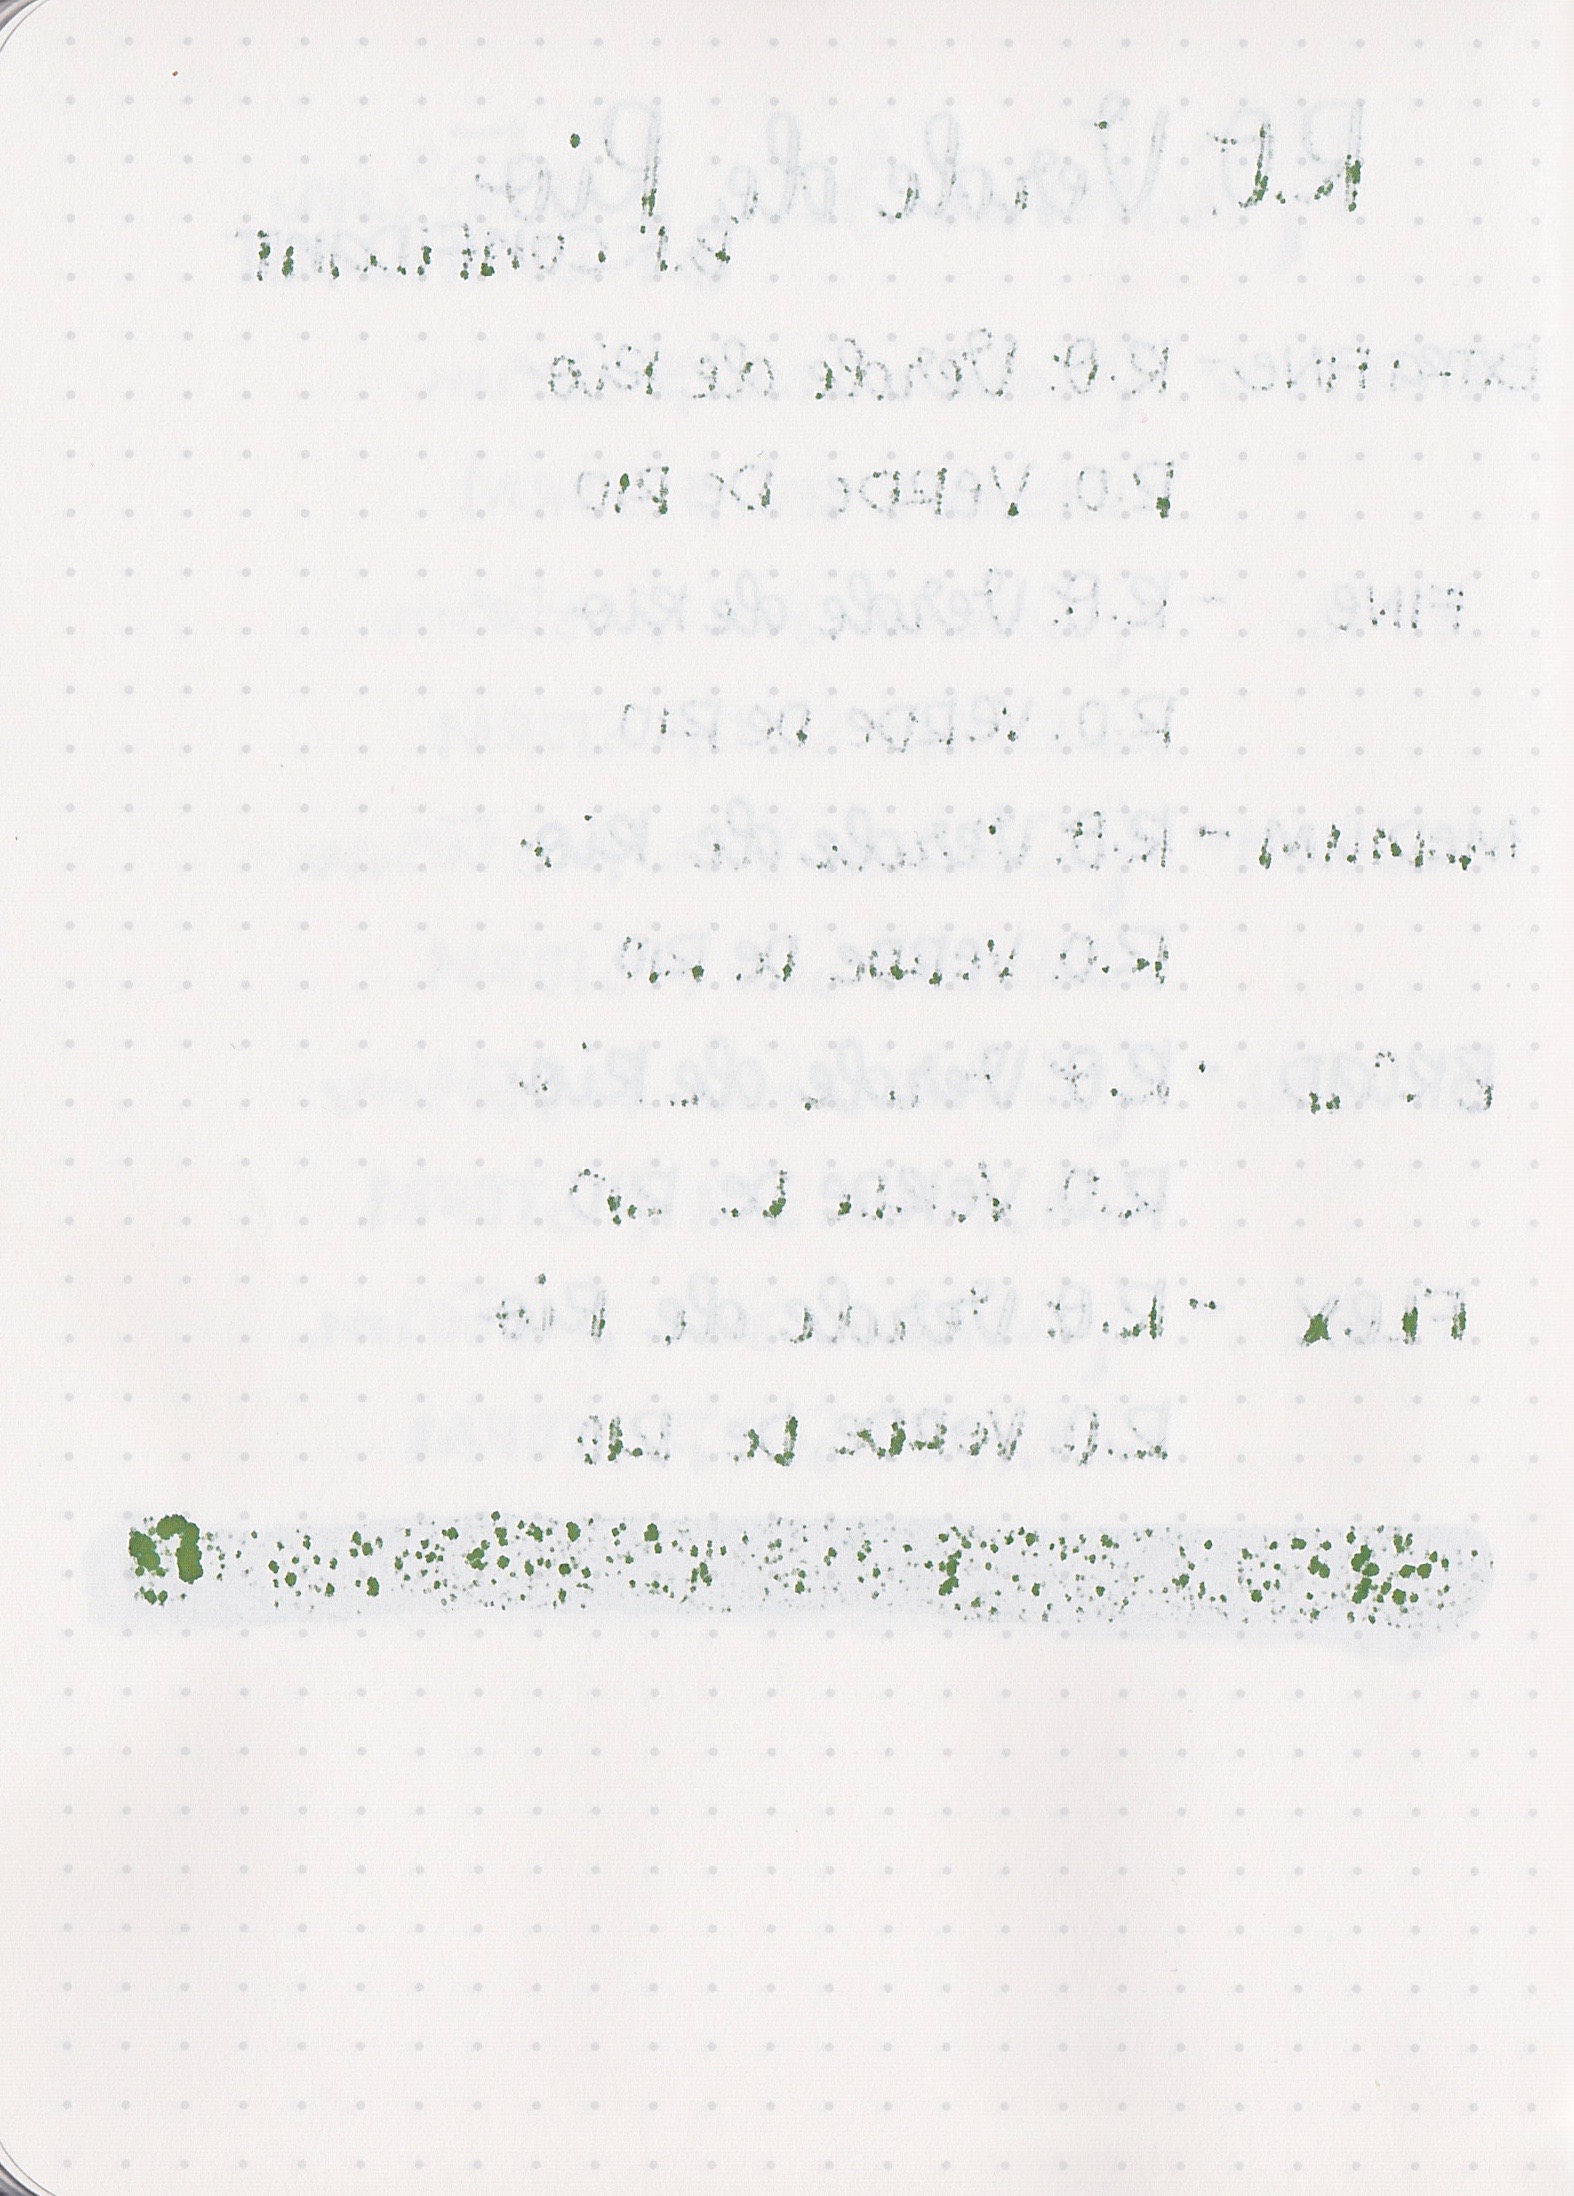 R.O. Verde de Rio
B.P. CONFIDANT
EXTRA FINE - R.O. Verde de Rio
R.O. VERDE DE RIO
FINE - R.O. Verde de Rio
R.O. VERDE DE RIO
MEDIUM - R.O. Verde de Rio
R.O. VERDE DE RIO
BROAD - R.O. Verde de Rio
R.O. VERDE DE RIO
FLEX - R.O. Verde de Rio
R.O. VERDE DE RIO